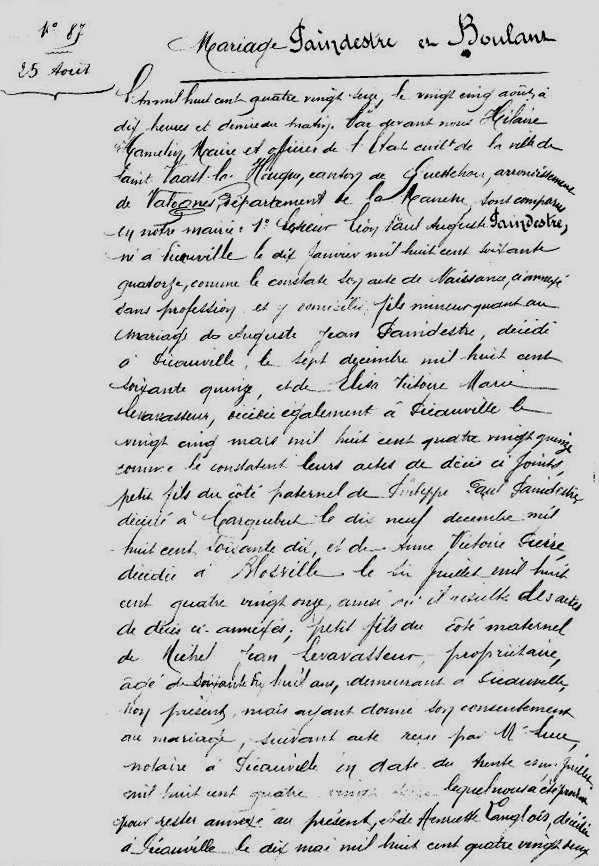 N° 87
25 Août
Mariage Paindestre et Boulant
L'An mil huit cent quatre vingt seize, le vingt cinq août, à
dix heures et demie du matin. Par devant nous Hilaire
Hamelin, Maire et officier de l'Etat civil de la ville de
Saint Vaast-la-Hougue, canton de Quettehou, arrondissement
de Valognes, Département de la Manche, sont comparus
en notre mairie: 1° Léon Paul Auguste Paindestre,
né à Picauville le dix Janvier mil huit cent soixante
quatorze, comme le constate son acte de Naissance, ci annexé
sans profession et y domicilié, fils mineur quant au
mariage de Auguste Jean Paindestre, décédé
à Picauville, le sept decembre mil huit cent
soixante quinze, et de Elisa Victoire Marie
Levavasseur, décédée également à Picauville le
vingt cinq mars mil huit cent quatre vingt quinze
comme le constatent leurs actes de décès ci joints,
petit fils du côté paternel de Philippe Paul Paindestre
décédé à Carquebut le dix neuf decembre mil
huit cent soixante dix, et de Anne Victoire Pierre,
décédée à Blosville le six Juillet mil huit
cent quatre vingt onze, ainsi qu'il resulte des actes
de décès ci-annexés; petit fils du côté maternel
de Michel Jean Levavasseur, propriétaire,
âgé de soixante dix huit ans, demeurant à Picauville,
non présent, mais ayant donné son consentement
au mariage, suivant acte reçu par Me
notaire à Picauville en date du trente Juillet
mil huit cent quatre vingt seize lequel nous a été
pour rester annexé au présent, et de Henriette Langlois, décédée
à Picauville le dix mai mil huit cent quatre vingt deux